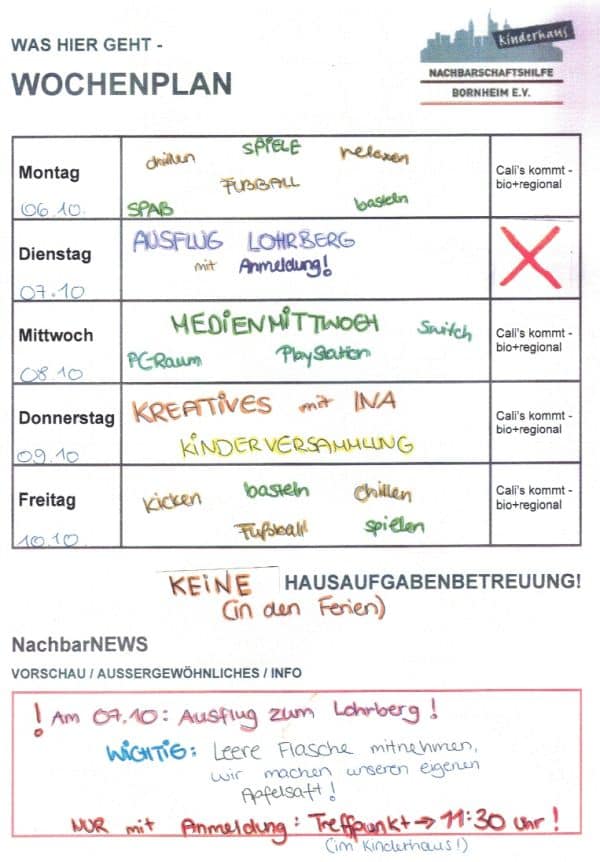 WAS HIER GEHT -
WOCHENPLAN
kinderhaus
NACHBARSCHAFTSHILFE
BORNHEIM E.V.
Montag
06.10.
chillen SPIELE relaxen
FUßBALL
SPAß basteln
Cali's kommt -
bio+regional
Dienstag
07.10
AUSFLUG LOHRBERG
mit Anmeldung!
Mittwoch
08.10
MEDIENMITTWOCH Switch
PC-Raum PlayStation
Cali's kommt -
bio+regional
Donnerstag
09.10
KREATIVES mit INA
KINDERVERSAMMLUNG
Cali's kommt -
bio+regional
Freitag
10.10.
kicken basteln chillen
Fußball spielen
Cali's kommt -
bio+regional
KEINE HAUSAUFGABENBETREUUNG!
(in den Ferien)
NachbarNEWS
VORSCHAU / AUSSERGEWÖHNLICHES / INFO
! Am 07.10: Ausflug zum Lohrberg!
WICHTIG: Leere Flasche mitnehmen,
wir machen unseren eigenen
Apfelsaft!
NUR mit Anmeldung: Treffpunkt → 11:30 Uhr!
(im Kinderhaus!)